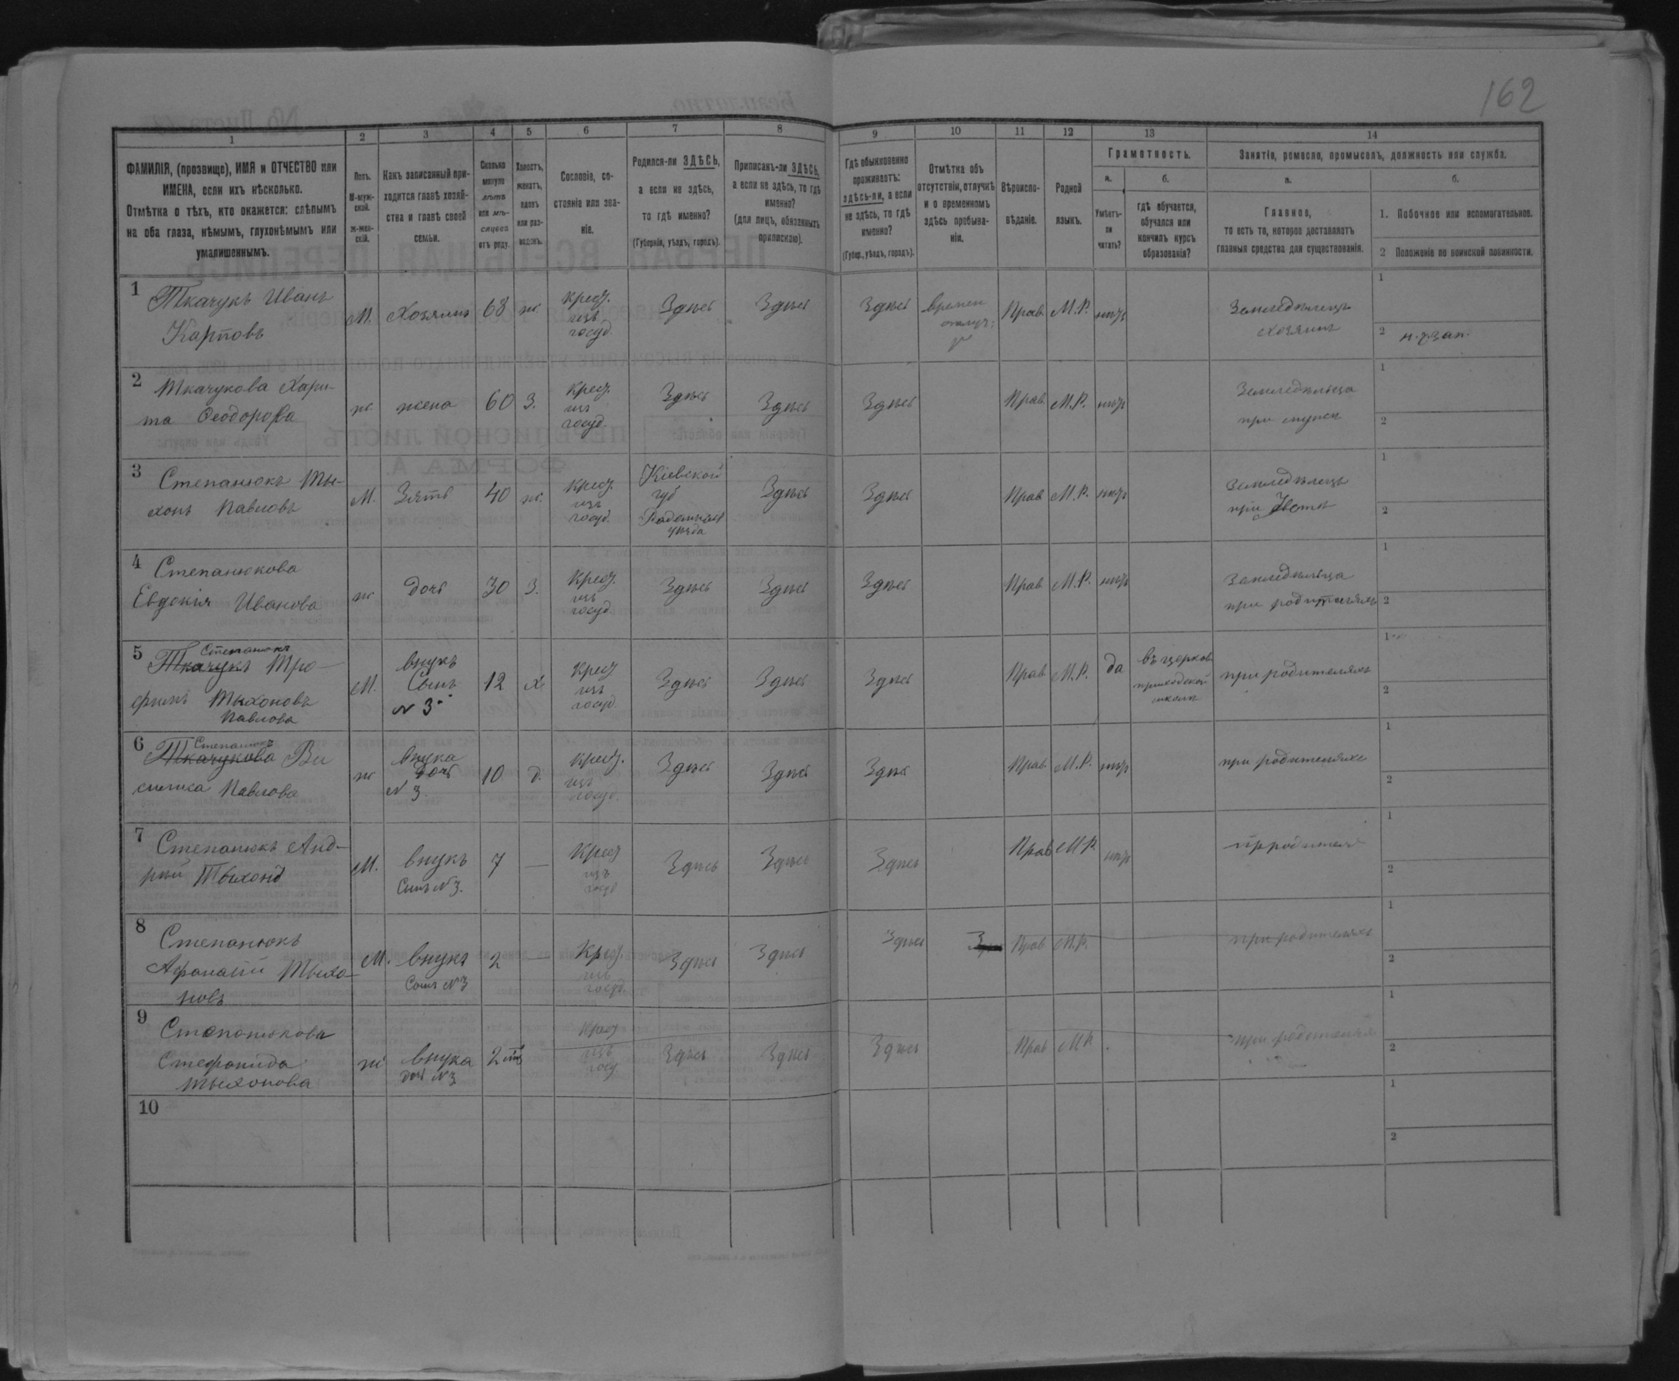 162
1 2 3 4 5 6 7 8 9 10 11 12 13 14
ФАМИЛІЯ, (прозвище), ИМЯ и ОТЧЕСТВО или
ИМЕНА, если ихъ нѣсколько.
Отмѣтка о тѣхъ, кто окажется: слѣпымъ
на оба глаза, нѣмымъ, глухонѣмымъ или
умалишеннымъ.
Полъ.
М-муж-
ской.
ж-жен-
скій.
Какъ записанный при-
ходится главѣ хозяй-
ства и главѣ своей
семьи.
Сколько
минуло
лѣтъ
или мѣ-
сяцевъ
отъ роду.
Холостъ,
женатъ,
вдовъ
или раз-
веденъ.
Сословіе, со-
стояніе или зва-
ніе.
Родился-ли ЗДѢСЬ,
а если не здѣсь,
то гдѣ именно?
(Губернія, уѣздъ, городъ).
Приписанъ-ли ЗДѢСЬ,
а если не здѣсь, то гдѣ
именно?
(для лицъ, обязанныхъ
припискою).
Гдѣ обыкновенно
проживаетъ:
здѣсь-ли, а если
не здѣсь, то гдѣ
именно?
(Губер., уѣздъ, городъ).
Отмѣтка объ
отсутствіи, отлучкѣ
и о временномъ
здѣсь пребыва-
ніи.
Вѣроиспо-
вѣданіе.
Родной
языкъ.
Грамотность.
а.
Умѣетъ-
ли
читать?
б.
гдѣ обучается,
обучался или
кончилъ курсъ
образованія?
Занятіе, ремесло, промыселъ, должность или служба.
а.
Главное,
то есть то, которое доставляетъ
главныя средства для существованія.
б.
1. Побочное или вспомогательное.
2 Положеніе по воинской повинности.
1 Ткачукъ Иванъ
Карповъ
М. Хозяинъ 68 ж.
Крест.
изъ
госуд.
Здѣсь Здѣсь Здѣсь
времен
отлуч.
Прав М.Р. нѣтъ
Земледѣлецъ
хозяинъ
1
2
2 Ткачукова Хари-
та Феодорова
ж жена 60 З.
Крест.
изъ
госуд.
Здѣсь Здѣсь Здѣсь Прав М.Р. нѣтъ
Земледѣлица
при мужѣ
1
2
3 Степанюкъ Ты-
хонъ Павловъ
М. Зять 40 ж.
Крест.
изъ
госуд.
Кіевской
губ
Радомысл
уѣзда
Здѣсь Здѣсь Прав М.Р. нѣтъ
Земледѣлецъ
при тестѣ
1
2
4 Степанюкова
Евдокія Иванова
ж дочь 30 З.
Крест.
изъ
госуд.
Здѣсь Здѣсь Здѣсь Прав М.Р. нѣтъ
Земледѣлица
при родителяхъ
1
2
5 Степанюкъ
Ткачукъ Тро-
фимъ Тыхоновъ
Павлова
М.
внукъ
Сынъ
N 3.
12 х
Крест
изъ
госуд
Здѣсь Здѣсь Здѣсь Прав М.Р. да
въ церков
приходской
школѣ
при родителяхъ
1
2
6 Степанюкъ
Ткачукова Ва
силиса Павлова
ж
внука
дочь
N 3
10 д.
Крест.
изъ
госуд.
Здѣсь Здѣсь Здѣсь Прав М.Р. нѣтъ
при родителяхъ
1
2
7 Степанюкъ Анд-
рій Тыхонов
М.
внукъ
Сынъ N 3.
7 —
Крест
изъ
госуд
Здѣсь Здѣсь Здѣсь Прав М.Р. нѣтъ
1
2
8 Степанюкъ
Афонасій Тыхо-
новъ
М.
внукъ
Сынъ N 3
2 —
Крест.
изъ
госуд.
Здѣсь Здѣсь Здѣсь Прав М.Р.
при родителяхъ
1
2
9 Степанюкова
Стефанида
Тыхонова
ж
внука
доч N 3
2
Крест
изъ
госуд
Здѣсь Здѣсь Здѣсь Прав М.Р.
при родителяхъ
1
2
10
1
2